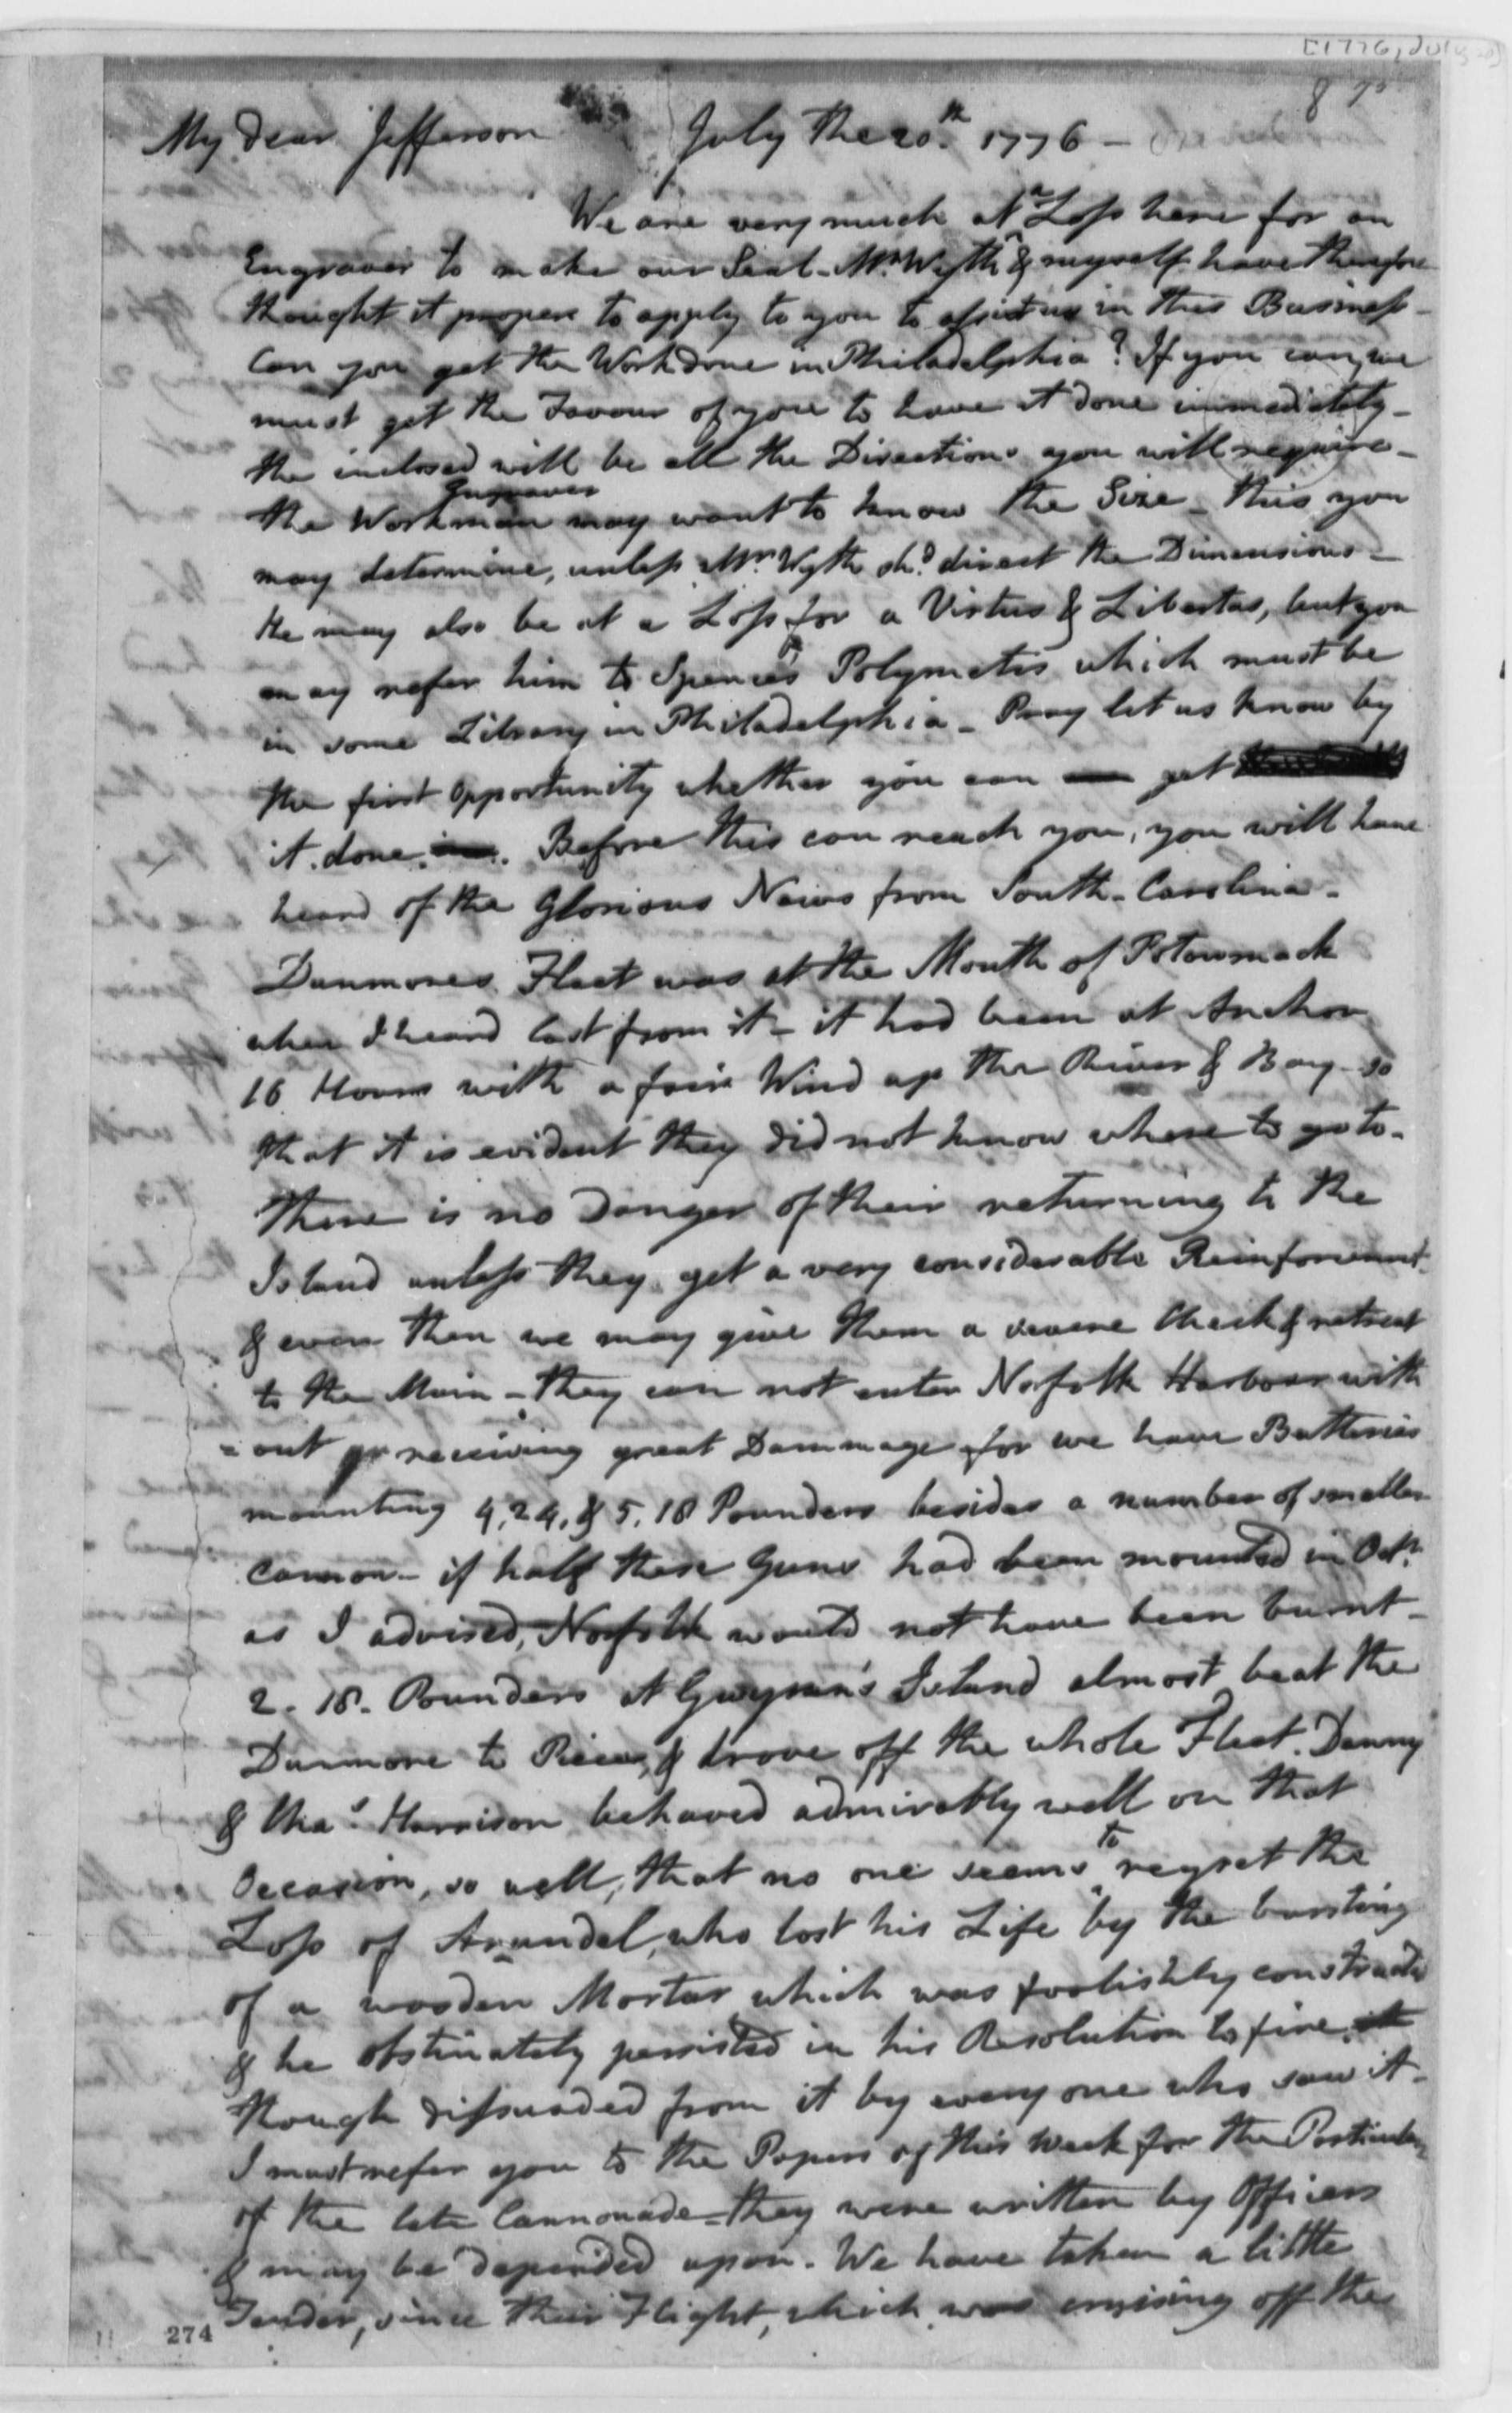 [1776, July 20]
8
My dear Jefferson July the 20.th 1776 –
We are very much at a Loss here for an
Engraver to make our Seal – Mr. Wyth & myself have therefore
thought it proper to apply to you to assist us in this Business –
Can you get the Work done in Philadelphia? If you can, we
must get the Favour of you to have it done immediately –
the inclosed will be all the Directions you will require –
Engraver
the Workman may want to know the Size – this you
may determine, unless Mr. Wyth shd. direct the Dimensions –
He may also be at a Loss for a Virtus & Libertas, but you
may refer him to Spence's Polymetis which must be
in some Library in Philadelphia – Pray let us know by
the first Opportunity whether you can get
it done. Before this can reach you, you will have
heard of the Glorious News from South-Carolina –
Dunmores Fleet was at the Mouth of Potowmack
when I heard last from it – it had been at Anchor
16 Hours with a fair Wind up the River & Bay – so
that it is evident they did not know where to go to –
There is no Danger of their returning to the
Island unless they get a very considerable Reinforcement
& even then we may give them a severe Check & retreat
to the Main – they can not enter Norfolk Harbour with
=out receiving great Dammage for we have Batteries
mounting 4, 24, & 5, 18 Pounders besides a number of smaller
Cannon – if half these Guns had been mounted in Octr.
as I advised, Norfolk would not have been burnt –
2. 18. Pounders at Gwynn's Island almost beat the
Dunmore to Pieces, & drove off the whole Fleet. Denny
& Chas. Harrison behaved admirably well on that
Occasion, so well, that no one seems to regret the
Loss of Arundel, who lost his Life by the bursting
of a wooden Mortar which was foolishly constructed
& he obstinately persisted in his Resolution to fire it
though dissuaded from it by every one who saw it –
I must refer you to the Papers of this Week for the Particulars
of the late Cannonade – they were written by Officers
& may be depended upon. We have taken a little
Tender, since their Flight, which was cruising off the
274